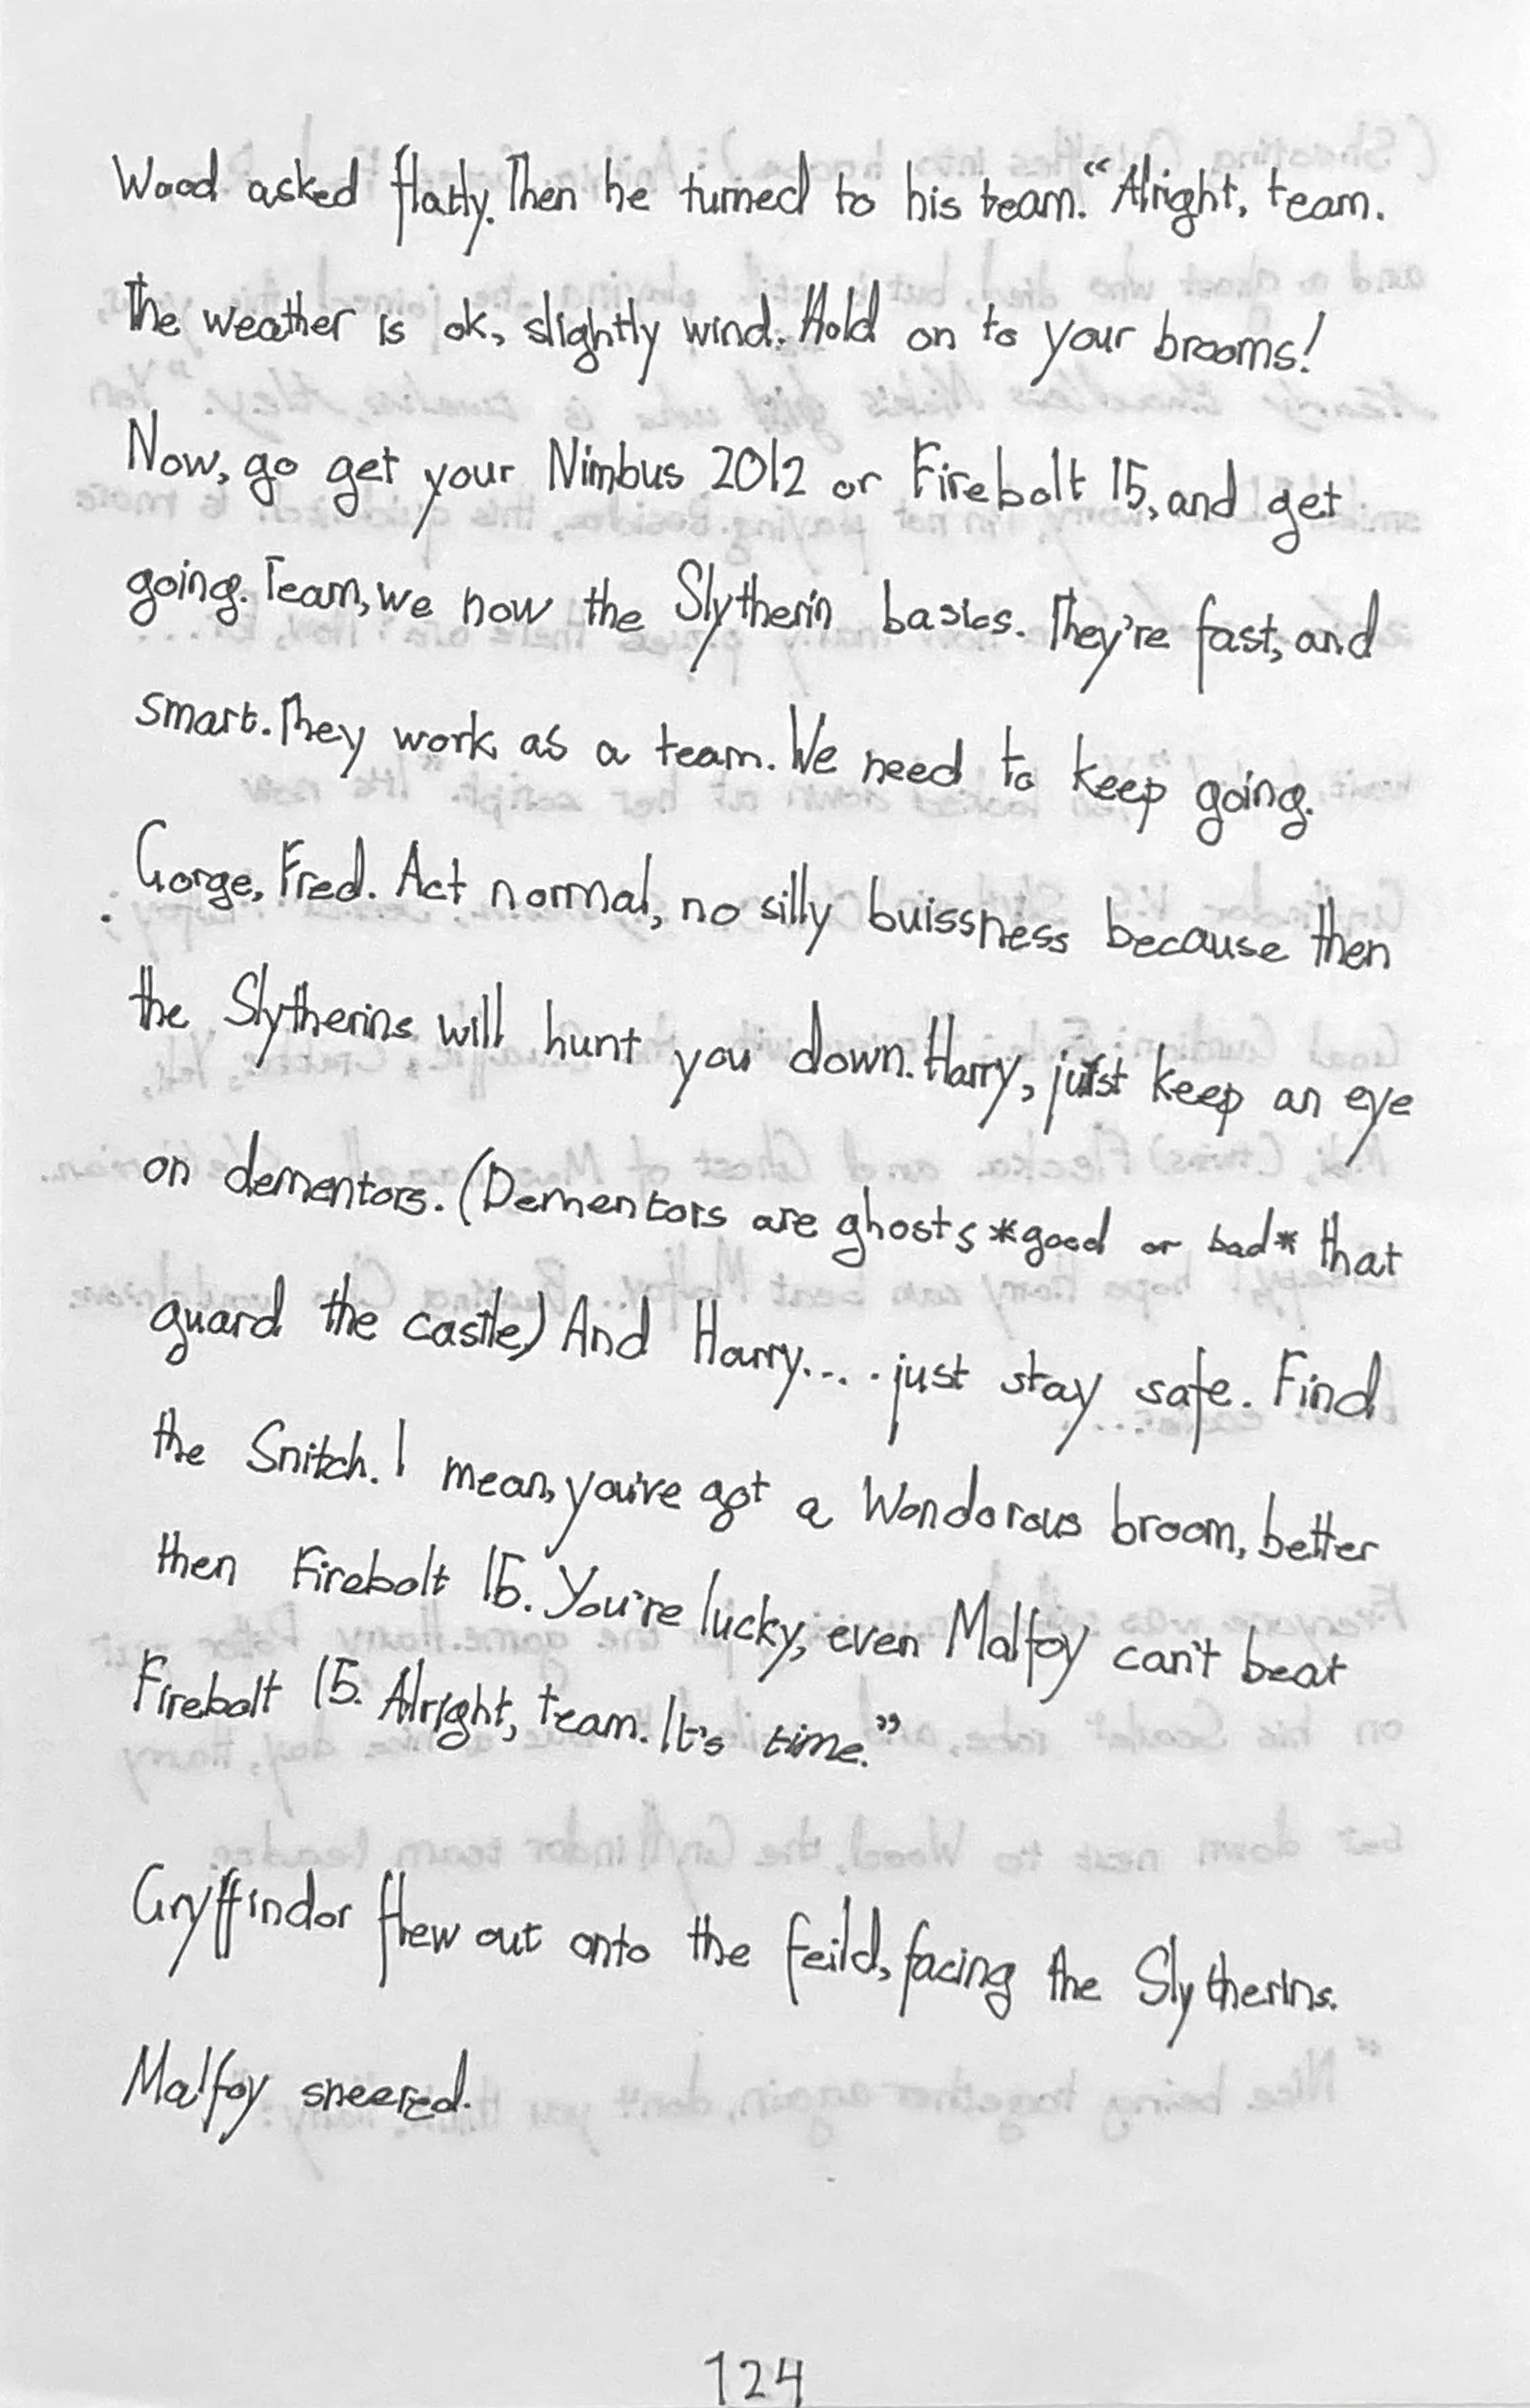 Wood asked flatly. Then he turned to his team. “Alright, team.
The weather is ok, slightly wind. Hold on to your brooms!
Now, go get your Nimbus 2012 or Firebolt 15, and get
going. Team, we now the Slytherin basics. They're fast, and
smart. They work as a team. We need to keep going.
Gorge, Fred. Act normal, no silly buissness because then
the Slytherins will hunt you down. Harry, just keep an eye
on dementors. (Dementors are ghosts *good or bad* that
guard the castle) And Harry.... just stay safe. Find
the Snitch. I mean, you've got a Wondorous broom, better
then Firebolt 15. You're lucky, even Malfoy can't beat
Firebolt 15. Alright, team. It's time.”
Gryffindor flew out onto the feild, facing the Slytherins.
Malfoy sneered.
124